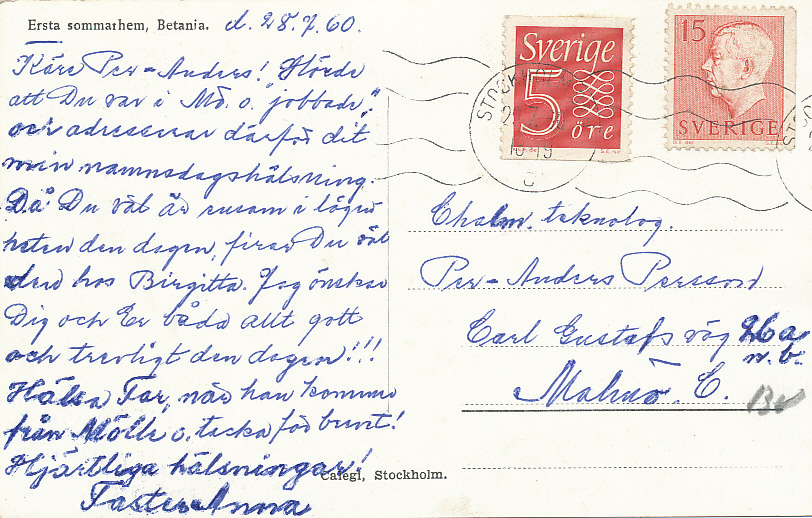 Ersta sommarhem, Betania. d. 28.7.60.
Käre Per-Anders! Hörde
att Du var i Mö. o. "jobbade",
och adresserar därför dit
min namnsdagshälsning.
Då Du väl är ensam i lägen
heten den dagen, firar Du väl
den hos Birgitta. Jag önskar
Dig och Er båda allt gott
och trevligt den dagen!!!
Hälsa Far, när han kommer
från Mölle o. tacka för brevet!
Hjärtliga hälsningar!
Faster Anna
Calegi, Stockholm.
Sverige
5
öre
15
SVERIGE
STOCKHOLM
Chalm. teknolog.
Per-Anders Persson
Carl Gustafs väg 26a
n.b.
Malmö C.